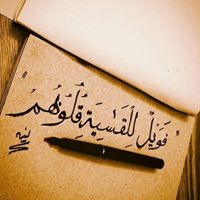 " فَوَيْلٌ لِلْقَاسِيَةِ قُلُوبُهُمْ "